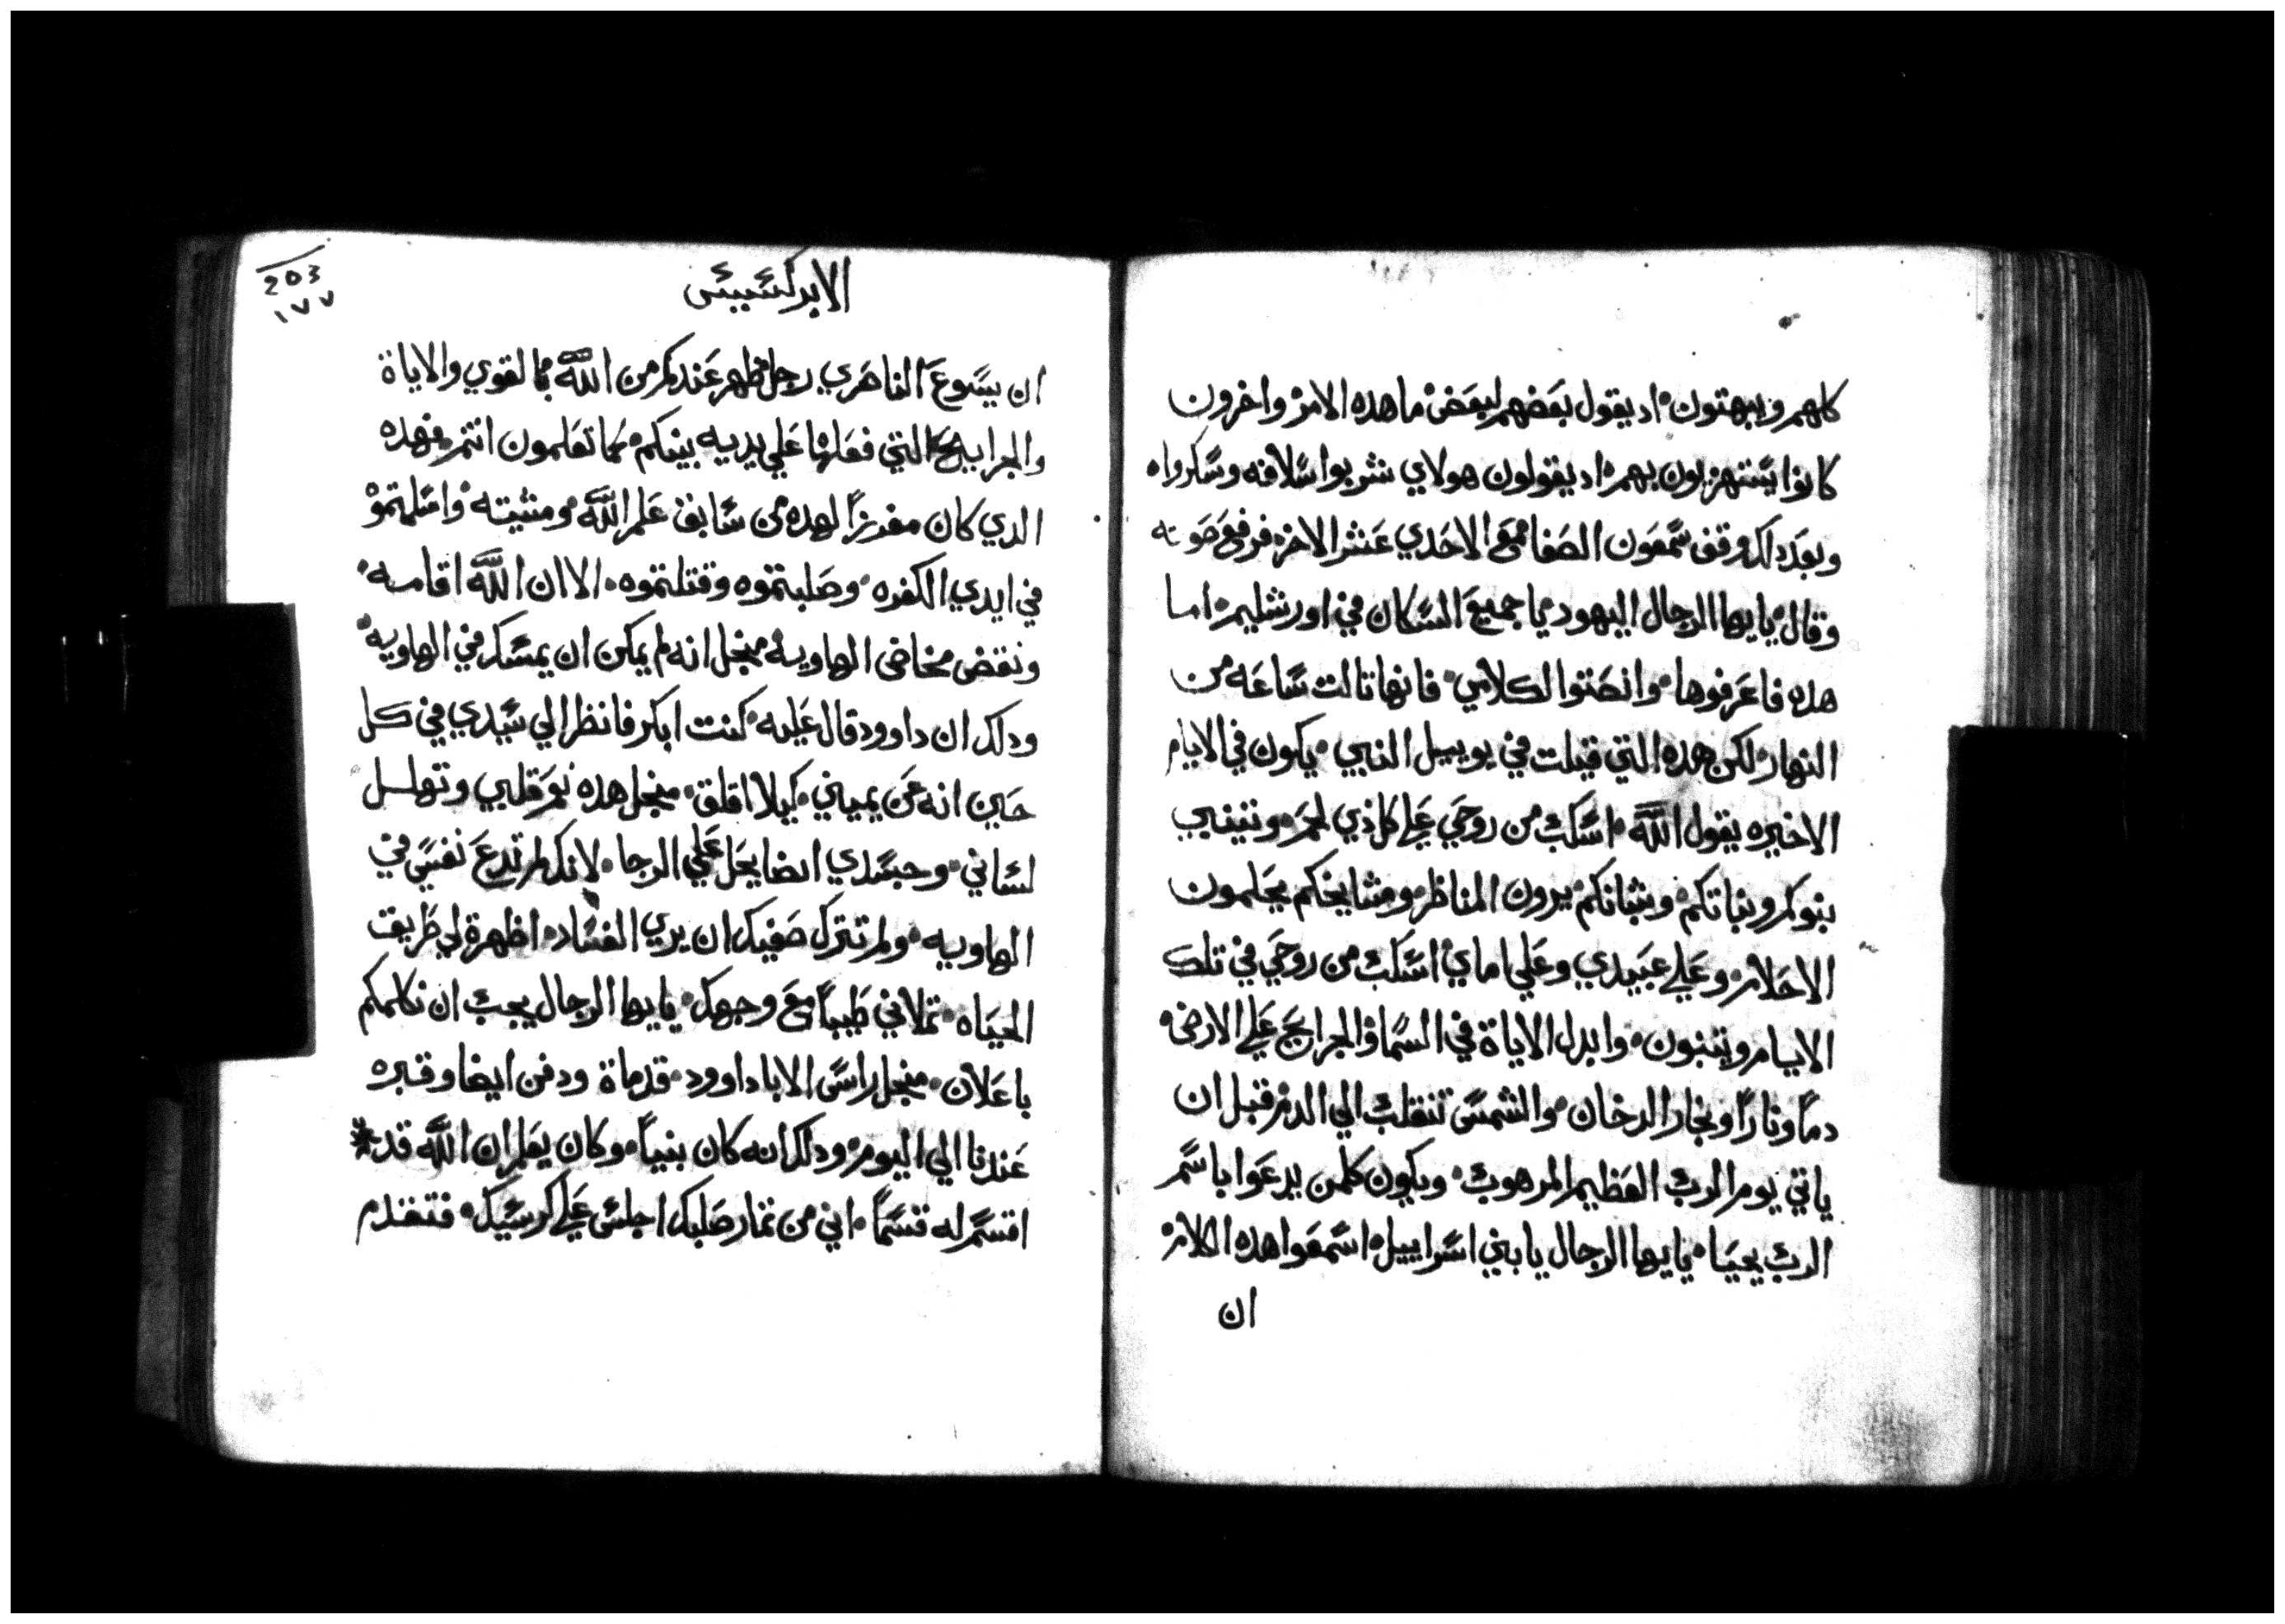 كلهم ويبهتون اد يقول بعضهم لبعض ما هده الامر واخرون
كانوا يستهزيون بهم اد يقولون هولاي شربوا سلافه وسكروا
وبعد دلك وقف شمعون الصفا مع الاحدي عشر الاخر فرفع صوته
وقال يا يها الرجال اليهود يا جميع السكان في اورشليم اما
هده فاعرفوها وانصتوا لكلامي فانها تالت ساعه من
النهار لكن هده التي قيلت في يوييل النبي يكون في الايام
الاخيره يقول الله اسكب من روحي علي كل ذي لحم وتتنبي
بنوكم وبناتكم وشبانكم يرون المناظر ومشايخكم يحلمون
الاحلام وعلي عبيدي وعلي اماي اسكب من روحي في تلك
الايام ويتنبون وابدل الاياة في السما والجرايح علي الارض
دماً وناراً وبخار الدخان والشمس تنقلب الي الدم قبل ان
ياتي يوم الرب العظيم المرهوب ويكون كلمن يدعوا باسم
الرب يحيا يا يها الرجال يا بني اسراييل اسمعوا هده الكلام
ان
203
١٧٧
الابركسيس
ان يسوع الناصري رجل ظهر عندكم من الله بالقوي والاياة
والجرايح التي فعلها علي يديه بينكم كما تعلمون انتم فهده
الدي كان مفرزاً لهده من سابق علم الله ومشيته واسلمتموْ
في ايدي الكفره وصلبتموه وقتلتموه الا ان الله اقامه
ونقض مخاض الهاويه منجل انه لم يمكن ان يمسك في الهاويه
ودلك ان داوود قال عليه كنت ابكر فانظر الي سيدي في كل
حين انه عن يميني كيلا اقلق منجل هده نعم قلبي وتهلل
لساني وجسدي ايضا يحل علي الرجا لانك لم تدع نفسي في
الهاويه ولم تترك صفيك ان يري الفساد اظهرة لي طريق
الحياه تملاني طيباً مع وجهك يا يها الرجال يجب ان نكلمكم
باعلان منجل راس الابا داوود قد ماة ودفن ايضا وقبره
عندنا الي اليوم ودلك انه كان نبياً وكان يعلم ان الله قد
اقسم له قسماً اني من ثمار صلبك اجلس علي كرسيك فتقدم